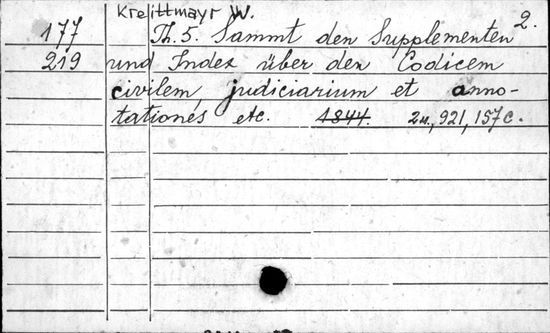 Kreittmayr W.
2.
177 Th. 5. Sammt den Supplementen
219 und Index über den Codicem
civilem, judiciarium et anno-
tationes etc. 1844. 2u., 921, 157 c.